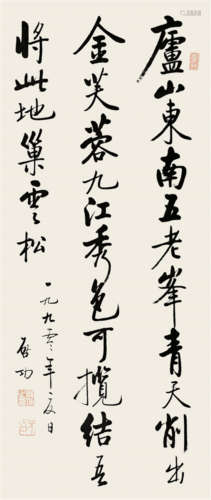 廬山東南五老峯青天削出
金芙蓉九江秀色可攬結吾
將此地巢雲松
一九九零年夏日
啟功